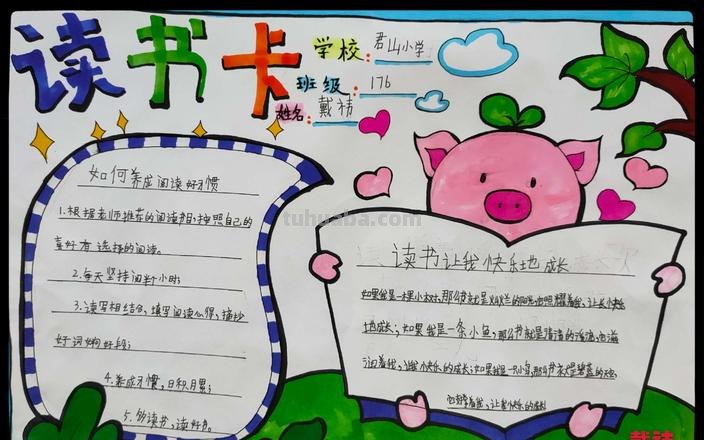 读书卡
学校:君山小学
班级:176
姓名:戴祎
如何养成阅读好习惯
1.根据老师推荐的阅读书目;按照自己的
喜好有选择的阅读。
2.每天坚持阅读半个小时;
3.读写相结合,填写阅读心得,摘抄
好词好句好段;
4.养成习惯,日积月累;
5.多读书,读好书。
tuhuaba.com
读书让我快乐地成长
如果我是一棵小树,那么书就是灿烂的阳光,照耀着我,让我快乐
地成长;如果我是一条小鱼,那么书就是清清的河流,滋
润着我,让我快乐的成长;如果我是一只小鸟,那么书就是碧蓝的天空,
着我,让我快乐的成长